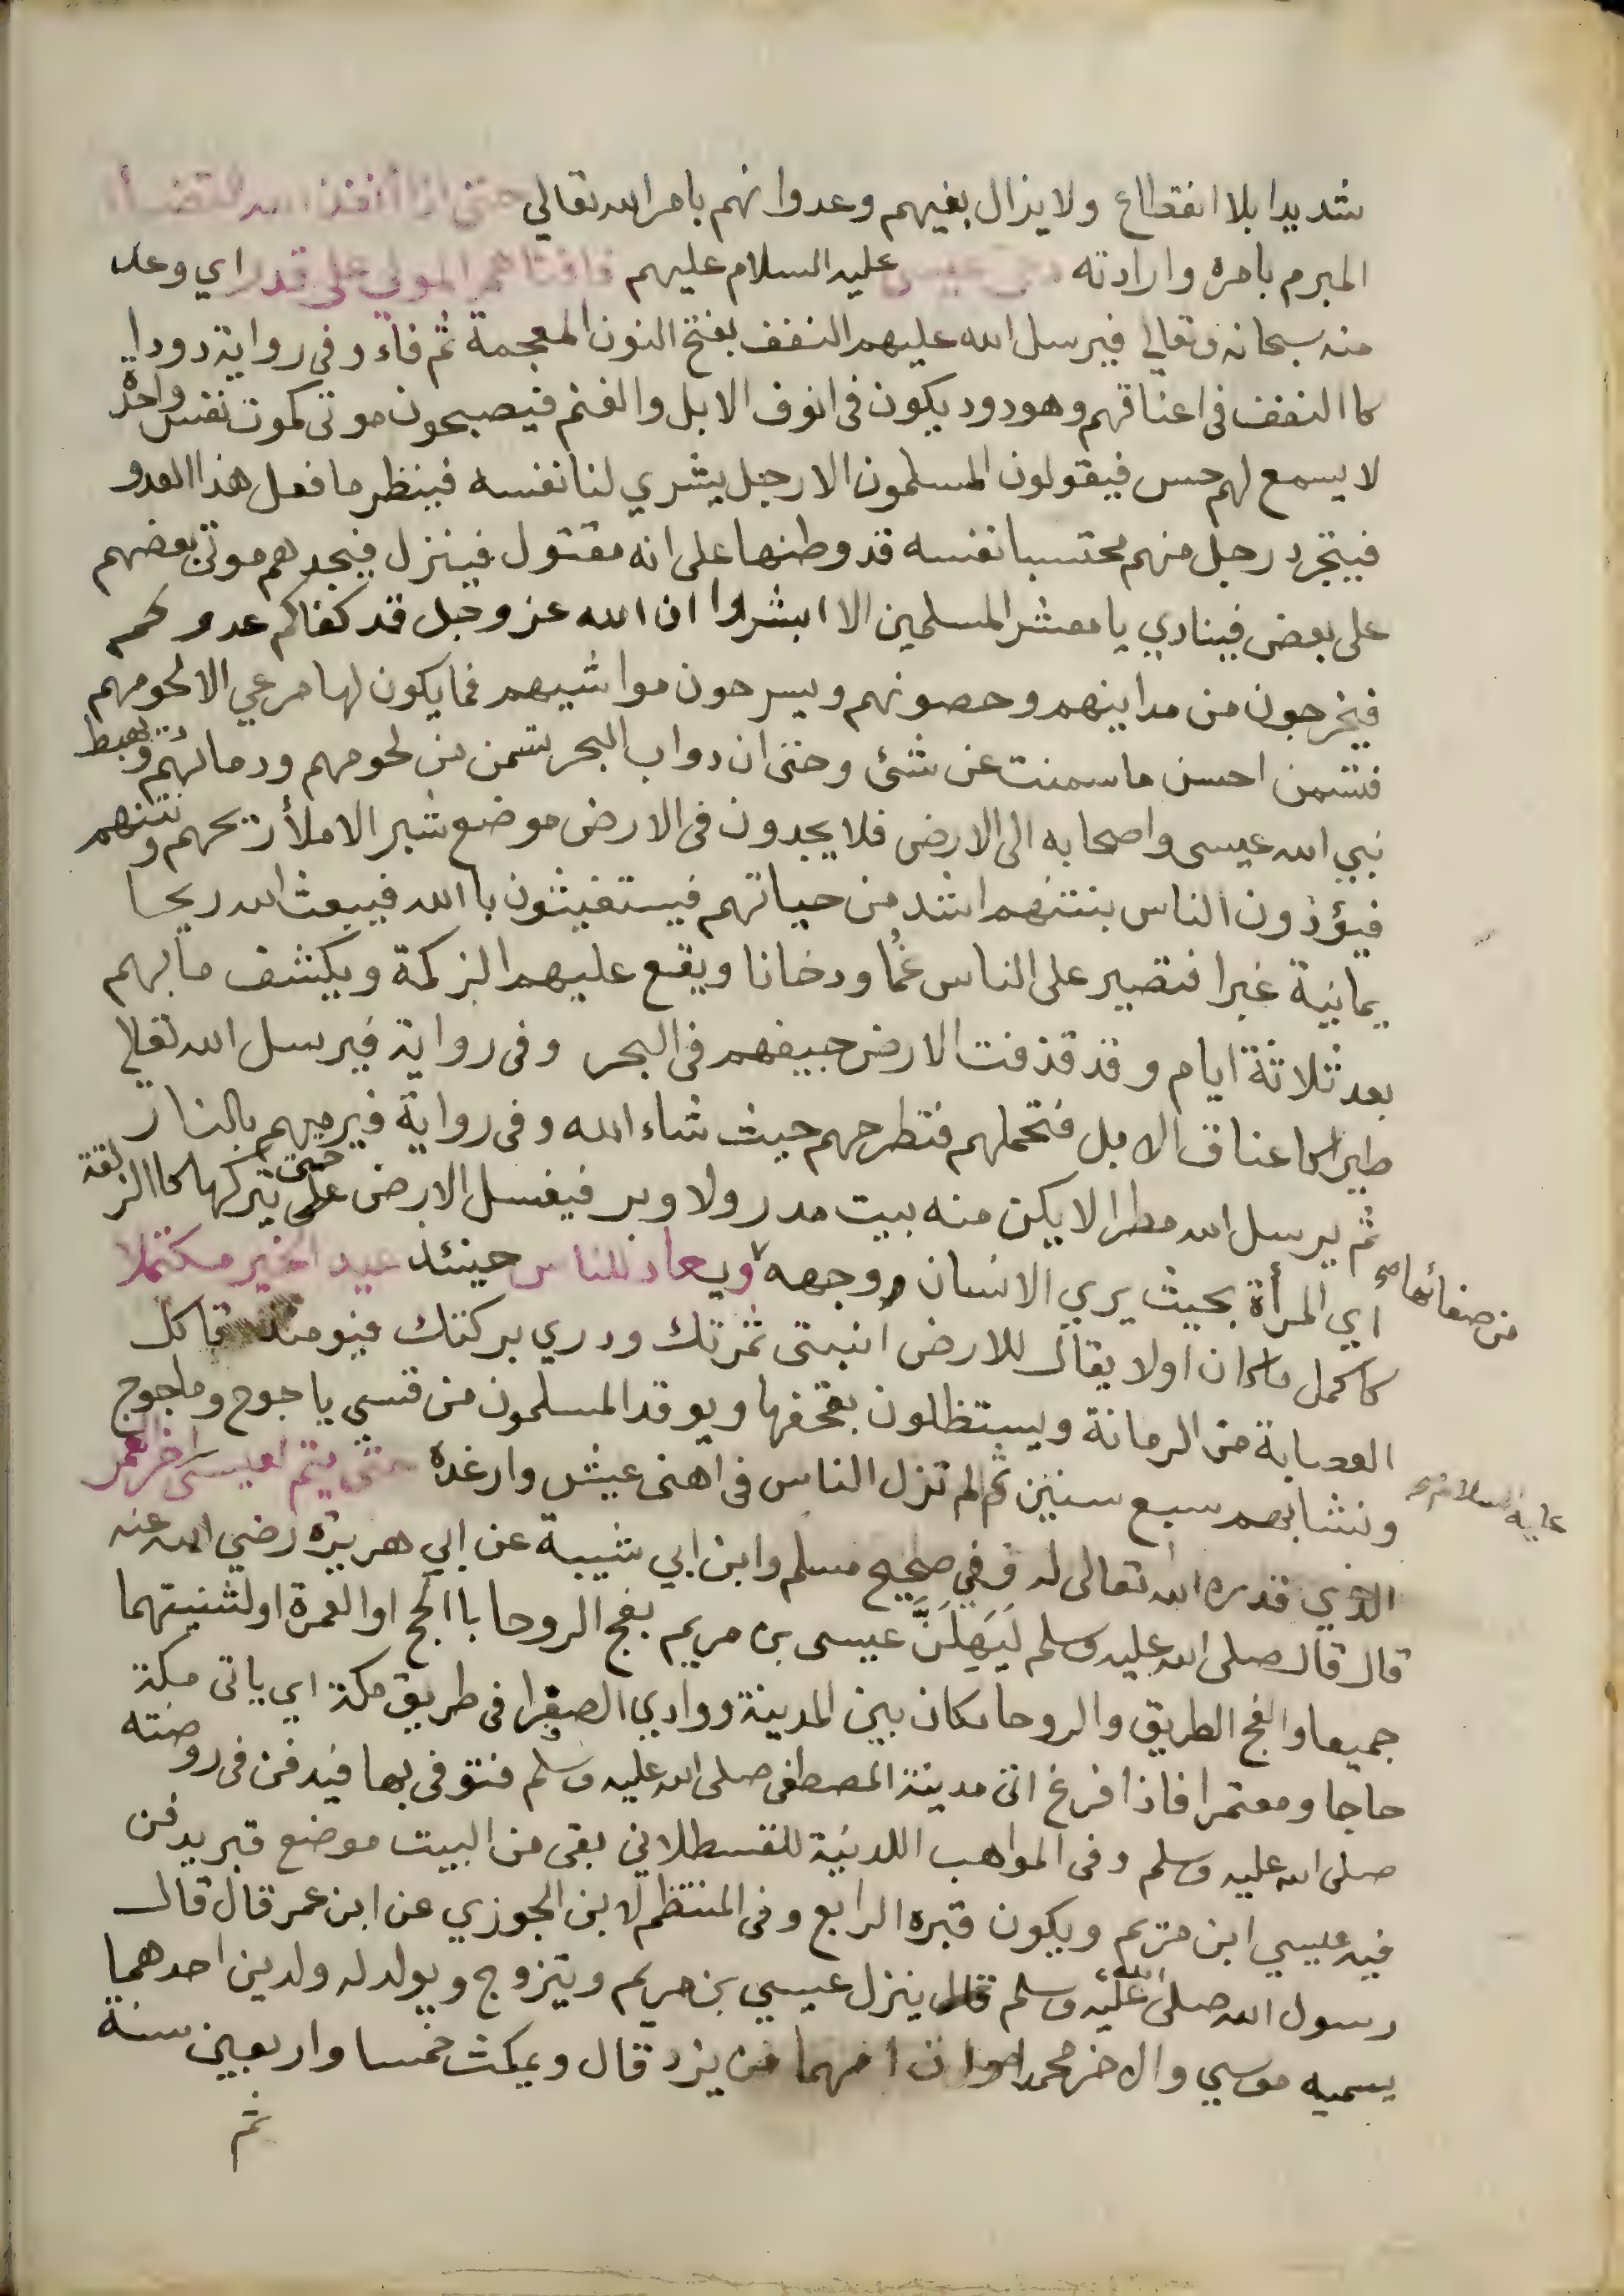 شديدا بلا انقطاع ولا يزال بغيهم وعدوانهم بامر الله تعالي حتى اذا انفذ الله القضاء
المبرم بامره وارادته دعى عيسى عليه السلام عليهم فافناهم المولي على قدر اي وعد
منه سبحانه وتعالي فيرسل الله عليهم النغف بفتح النون المعجمة ثم فاء وفى رواية دودا
كا النغف فى اعناقهم وهو دود يكون فى انوف الابل والغنم فيصبحون موتى كموت نفس واحدة
لا يسمع لهم حس فيقولون المسلمون الا رجل يشري لنا نفسه فينظر ما فعل هذا العدو
فيتجرد رجل منهم محتسبا نفسه قد وطنها على انه مقتول فينزل فيجدهم موتى بعضهم
على بعض فينادي يا معشر المسلمين الا ابشروا ان الله عز وجل قد كفاكم عدوكم
فيخرجون من مداينهم وحصونهم ويسرحون مواشيهم فما يكون لها مرعي الا لحومهم
فتسمن احسن ما سمنت عن شئ وحتى ان دواب البحر تسمن من لحومهم ودمائهم ويهبط
نبي الله عيسى واصحابه الى الارض فلا يجدون فى الارض موضع شبر الا ملأ ريحهم ونتنهم
فيؤذون الناس بنتنهم اشد من حياتهم فيستغيثون با الله فيبعث الله ريحا
يمانية غبرا فتصير على الناس غما ودخانا ويقع عليهم الزكمة ويكشف ما بهم
بعد ثلاثة ايام وقد قذفت الارض جيفهم فى البحر وفى رواية فيرسل الله تعالي
طيرا كاعناق الابل فتحملهم فتطرحهم حيث شاء الله وفى رواية فيرميهم بالنار
ثم يرسل الله مطرا لا يكن منه بيت مدر ولا وبر فيغسل الارض حتى يتركها كا الزلقة
اي المرأة بحيث يري الانسان وجهه من صفائها صح ويعاد للناس حينئذ عيد الخير مكتملا
كاكمل ما كان اولا يقال للارض انبتى ثمرتك ودري بركتك فيومئذ تاكل
العصابة من الرمانة ويستظلون بقحفها ويوقد المسلمون من قسي ياجوج وماجوج
ونشابهم سبع سنين ثم لم تزل الناس فى اهنى عيش وارغده حتى يتم لعيسى عليه السلام صح اخر العمر
الذي قدره الله تعالى له وفي صحيح مسلم وابن ابي شيبة عن ابي هريرة رضي الله عنه
قال قال صلى الله عليه وسلم لَيَهِلَّنَّ عيسى بن مريم بفج الروحا با الحج او العمرة او لثنيتهما
جميعا والفج الطريق والروحا مكان بين المدينة ووادي الصفرا فى طريق مكة اي ياتى مكة
حاجا ومعتمرا فاذا فرغ اتى مدينة المصطفى صلى الله عليه وسلم فتوفى بها فيدفن فى روضته
صلى الله عليه وسلم وفى المواهب اللدنية للقسطلاني بقى من البيت موضع قبر يدفن
فيه عيسي ابن مريم ويكون قبره الرابع وفى المنتظم لابن الجوزي عن ابن عمر قال قال
رسول الله صلى الله عليه وسلم ينزل عيسي بن مريم ويتزوج ويولد له ولدين احدهما
يسميه موسي والاخر محمدا من يزد قال ويمكث خمسا واربعين سنة
ثم